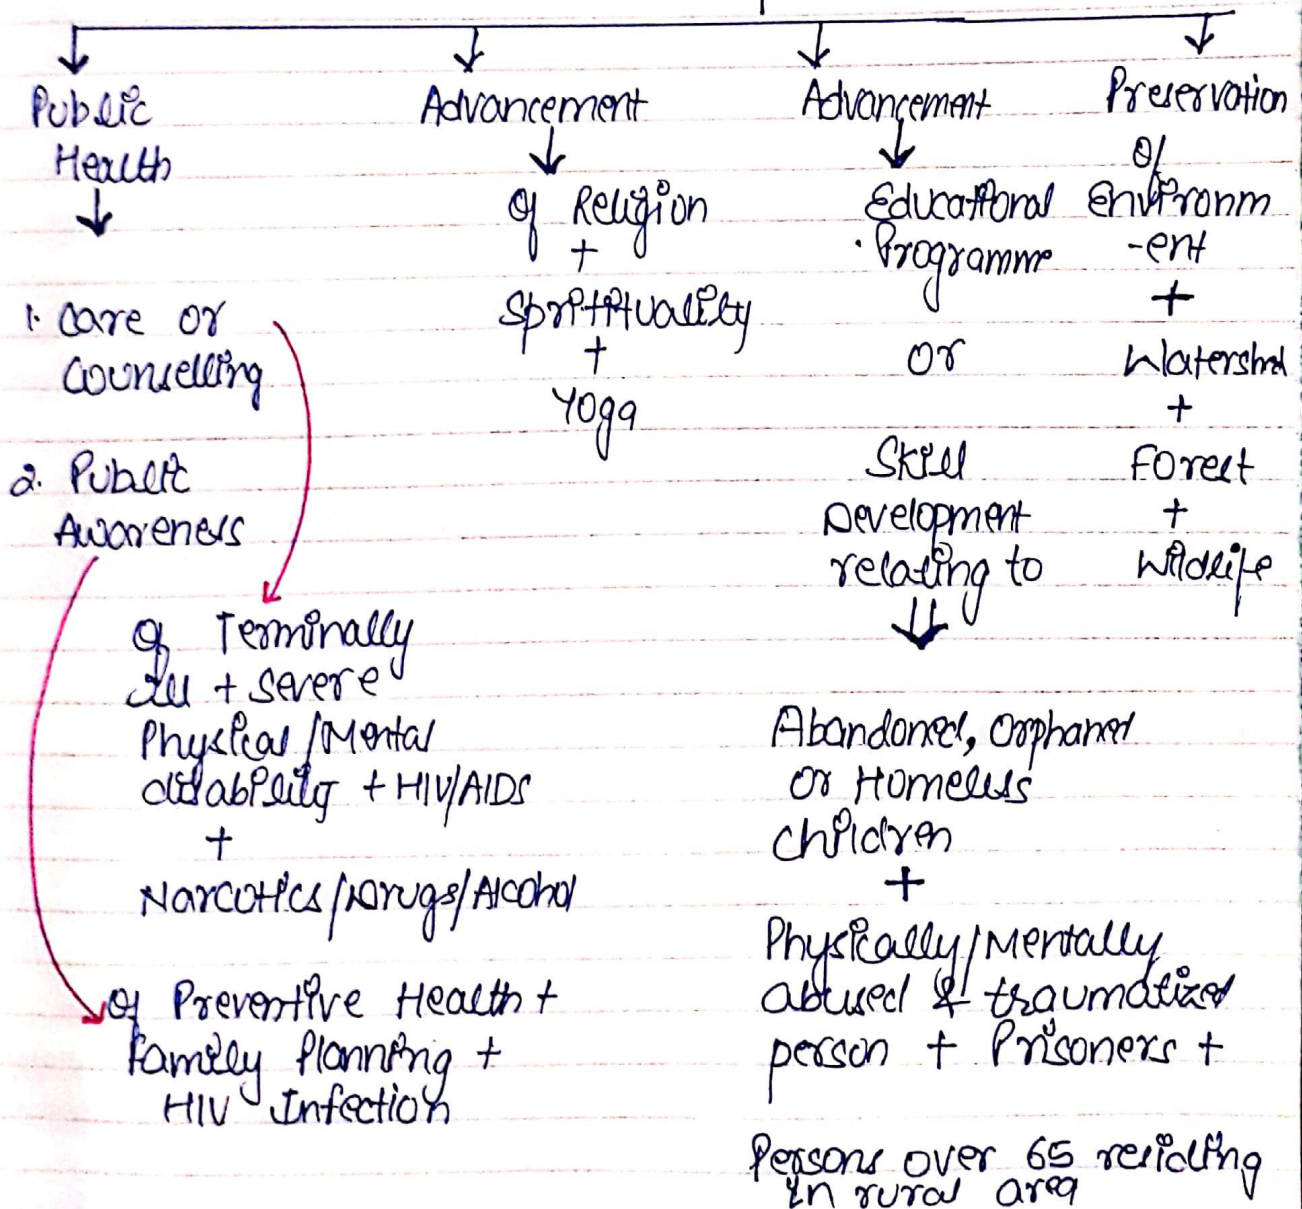 Public
Health
1. Care or
Counselling
2. Public
Awareness
of Terminally
ill + severe
Physical/Mental
disability + HIV/AIDS
+
Narcotics/Drugs/Alcohol
of Preventive Health +
Family Planning +
HIV Infection
Advancement
of Religion
+
Spritituality
+
Yoga
Advancement
Educational
Programme
or
Skill
Development
relating to
Abandoned, Orphaned
or Homeless
children
+
Physically/Mentally
abused & traumatized
person + Prisoners +
Persons over 65 residing
in rural area
Preservation
of
Environm
-ent
+
Watershed
+
Forest
+
Wildlife